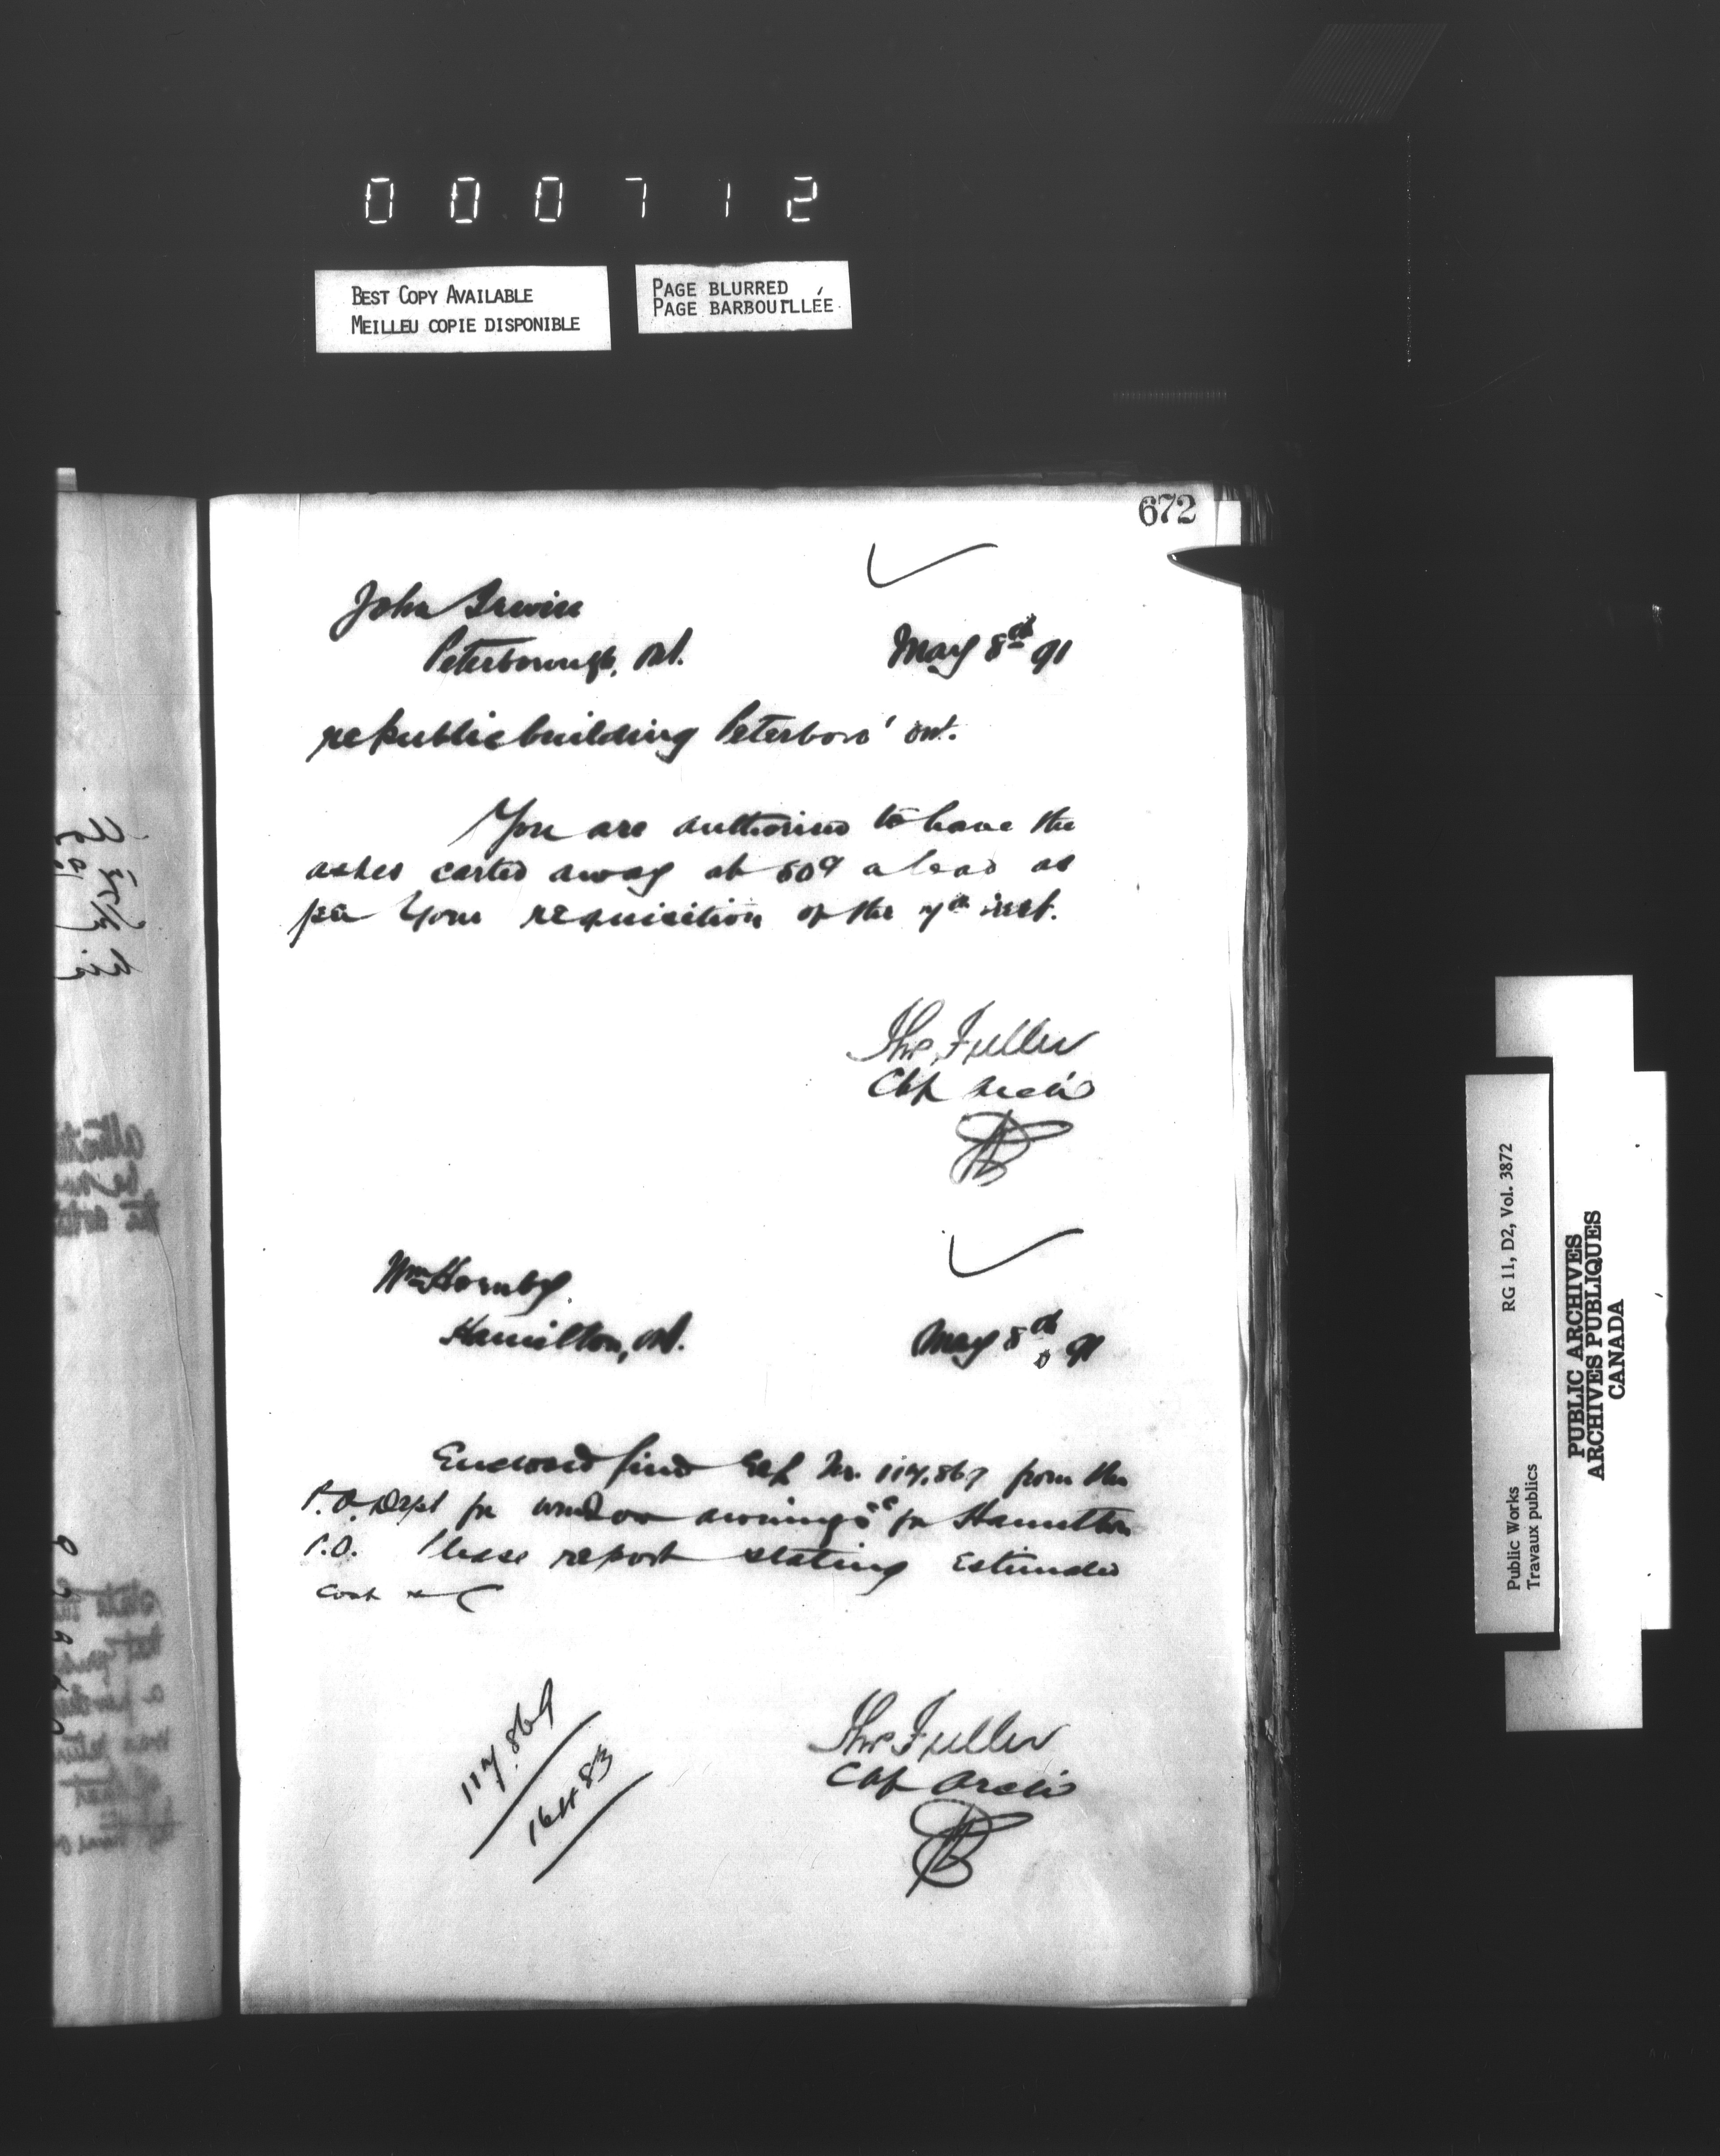 000712
BEST COPY AVAILABLE
MEILLEU COPIE DISPONIBLE
PAGE BLURRED
PAGE BARBOUILLÉE
672
John Irwin
Peterborough, Ont. May 8th 91
re public building Peterboro' Ont.
You are authorized to have the
ashes carted away at 50¢ a load as
per your requisition of the 7th inst.
Thos. Fuller
Chf Archt
Wm Hornby
Hamilton, Ont. May 8th 91
Enclosed find Ref No. 117,869 from the
P.O. Dept for window awnings &c for Hamilton
P.O. Please report stating estimated
cost &c
117.869
16483
Thos Fuller
Chf Archt
Public Works
Travaux publics
RG 11, D2, Vol. 3872
PUBLIC ARCHIVES
ARCHIVES PUBLIQUES
CANADA